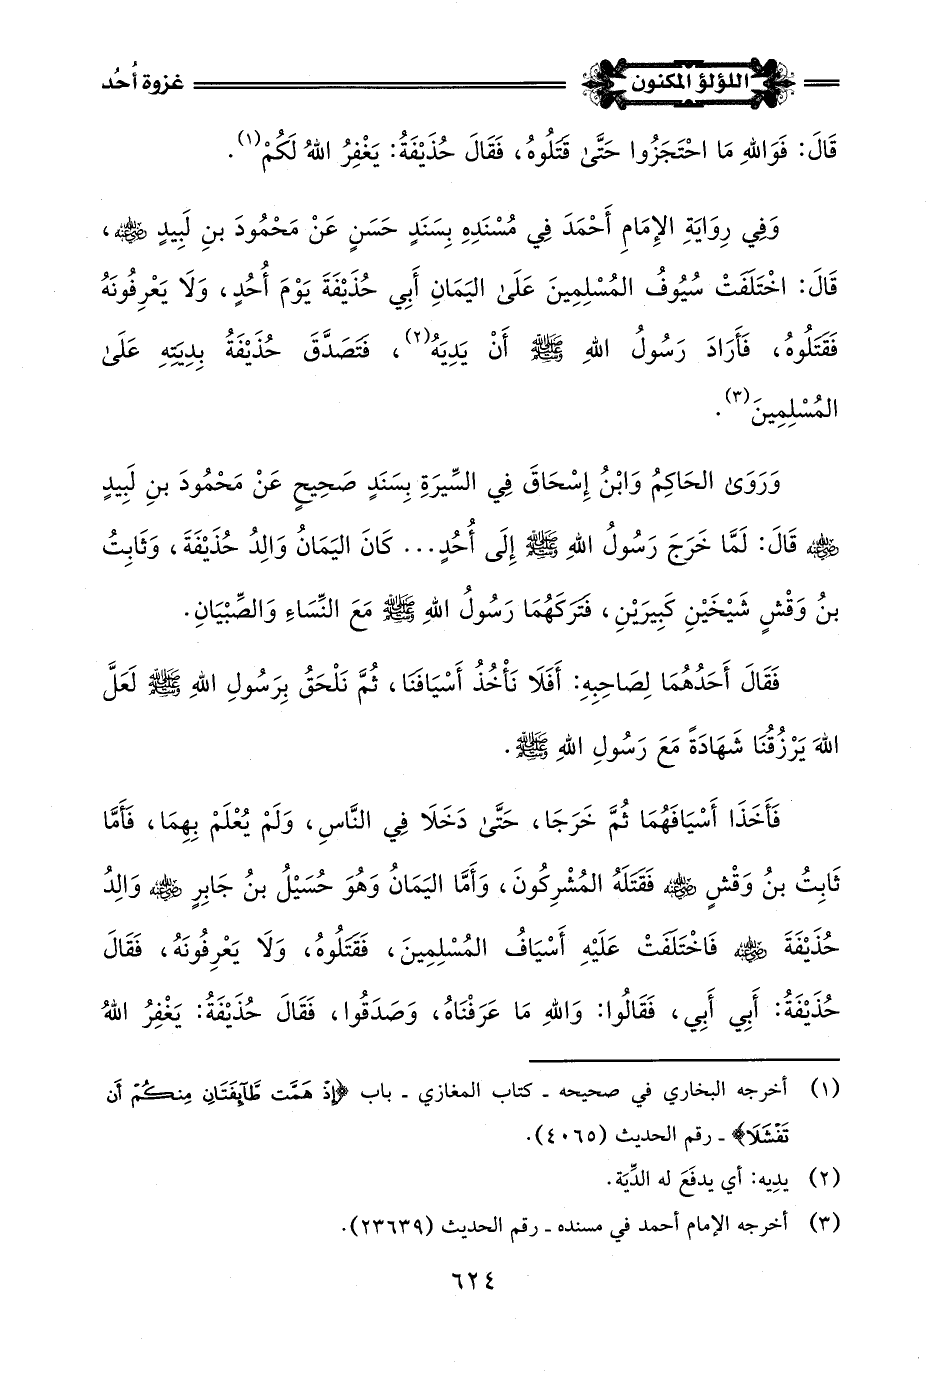 اللؤلؤ المكنون غزوة أُحُد
قَالَ: فَوَاللهِ مَا احْتَجَزُوا حَتَّىٰ قَتَلُوهُ، فَقَالَ حُذَيْفَةُ: يَغْفِرُ اللهُ لَكُمْ(١).
وَفِي رِوَايَةِ الإِمَامِ أَحْمَدَ فِي مُسْنَدِهِ بِسَنَدٍ حَسَنٍ عَنْ مَحْمُودَ بنِ لَبِيدٍ رضي الله عنه،
قَالَ: اخْتَلَفَتْ سُيُوفُ المُسْلِمِينَ عَلَىٰ اليَمَانِ أَبِي حُذَيْفَةَ يَوْمَ أُحُدٍ، وَلَا يَعْرِفُونَهُ
فَقَتَلُوهُ، فَأَرَادَ رَسُولُ اللهِ ﷺ أَنْ يَدِيَهُ(٢)، فَتَصَدَّقَ حُذَيْفَةُ بِدِيَتِهِ عَلَىٰ
المُسْلِمِينَ(٣).
وَرَوَىٰ الحَاكِمُ وَابْنُ إِسْحَاقَ فِي السِّيرَةِ بِسَنَدٍ صَحِيحٍ عَنْ مَحْمُودَ بنِ لَبِيدٍ
رضي الله عنه قَالَ: لَمَّا خَرَجَ رَسُولُ اللهِ ﷺ إِلَى أُحُدٍ... كَانَ اليَمَانُ وَالِدُ حُذَيْفَةَ، وَثَابِتُ
بنُ وَقْشٍ شَيْخَيْنِ كَبِيرَيْنِ، فَتَرَكَهُمَا رَسُولُ اللهِ ﷺ مَعَ النِّسَاءِ وَالصِّبْيَانِ.
فَقَالَ أَحَدُهُمَا لِصَاحِبِهِ: أَفَلَا نَأْخُذُ أَسْيَافَنَا، ثُمَّ نَلْحَقُ بِرَسُولِ اللهِ ﷺ لَعَلَّ
اللهَ يَرْزُقُنَا شَهَادَةً مَعَ رَسُولِ اللهِ ﷺ.
فَأَخَذَا أَسْيَافَهُمَا ثُمَّ خَرَجَا، حَتَّىٰ دَخَلَا فِي النَّاسِ، وَلَمْ يُعْلَمْ بِهِمَا، فَأَمَّا
ثَابِتُ بنُ وَقْشٍ رضي الله عنه فَقَتَلَهُ المُشْرِكُونَ، وَأَمَّا اليَمَانُ وَهُوَ حُسَيْلُ بنُ جَابِرٍ رضي الله عنه وَالِدُ
حُذَيْفَةَ رضي الله عنه فَاخْتَلَفَتْ عَلَيْهِ أَسْيَافُ المُسْلِمِينَ، فَقَتَلُوهُ، وَلَا يَعْرِفُونَهُ، فَقَالَ
حُذَيْفَةُ: أَبِي أَبِي، فَقَالُوا: وَاللهِ مَا عَرَفْنَاهُ، وَصَدَقُوا، فَقَالَ حُذَيْفَةُ: يَغْفِرُ اللهُ
(١) أخرجه البخاري في صحيحه ـ كتاب المغازي ـ باب ﴿إِذْ هَمَّت طَّآئِفَتَانِ مِنكُمْ أَن
تَفْشَلَا﴾ ـ رقم الحديث (٤٠٦٥).
(٢) يدِيه: أي يدفَعَ له الدِّيَة.
(٣) أخرجه الإمام أحمد في مسنده ـ رقم الحديث (٢٣٦٣٩).
٦٢٤